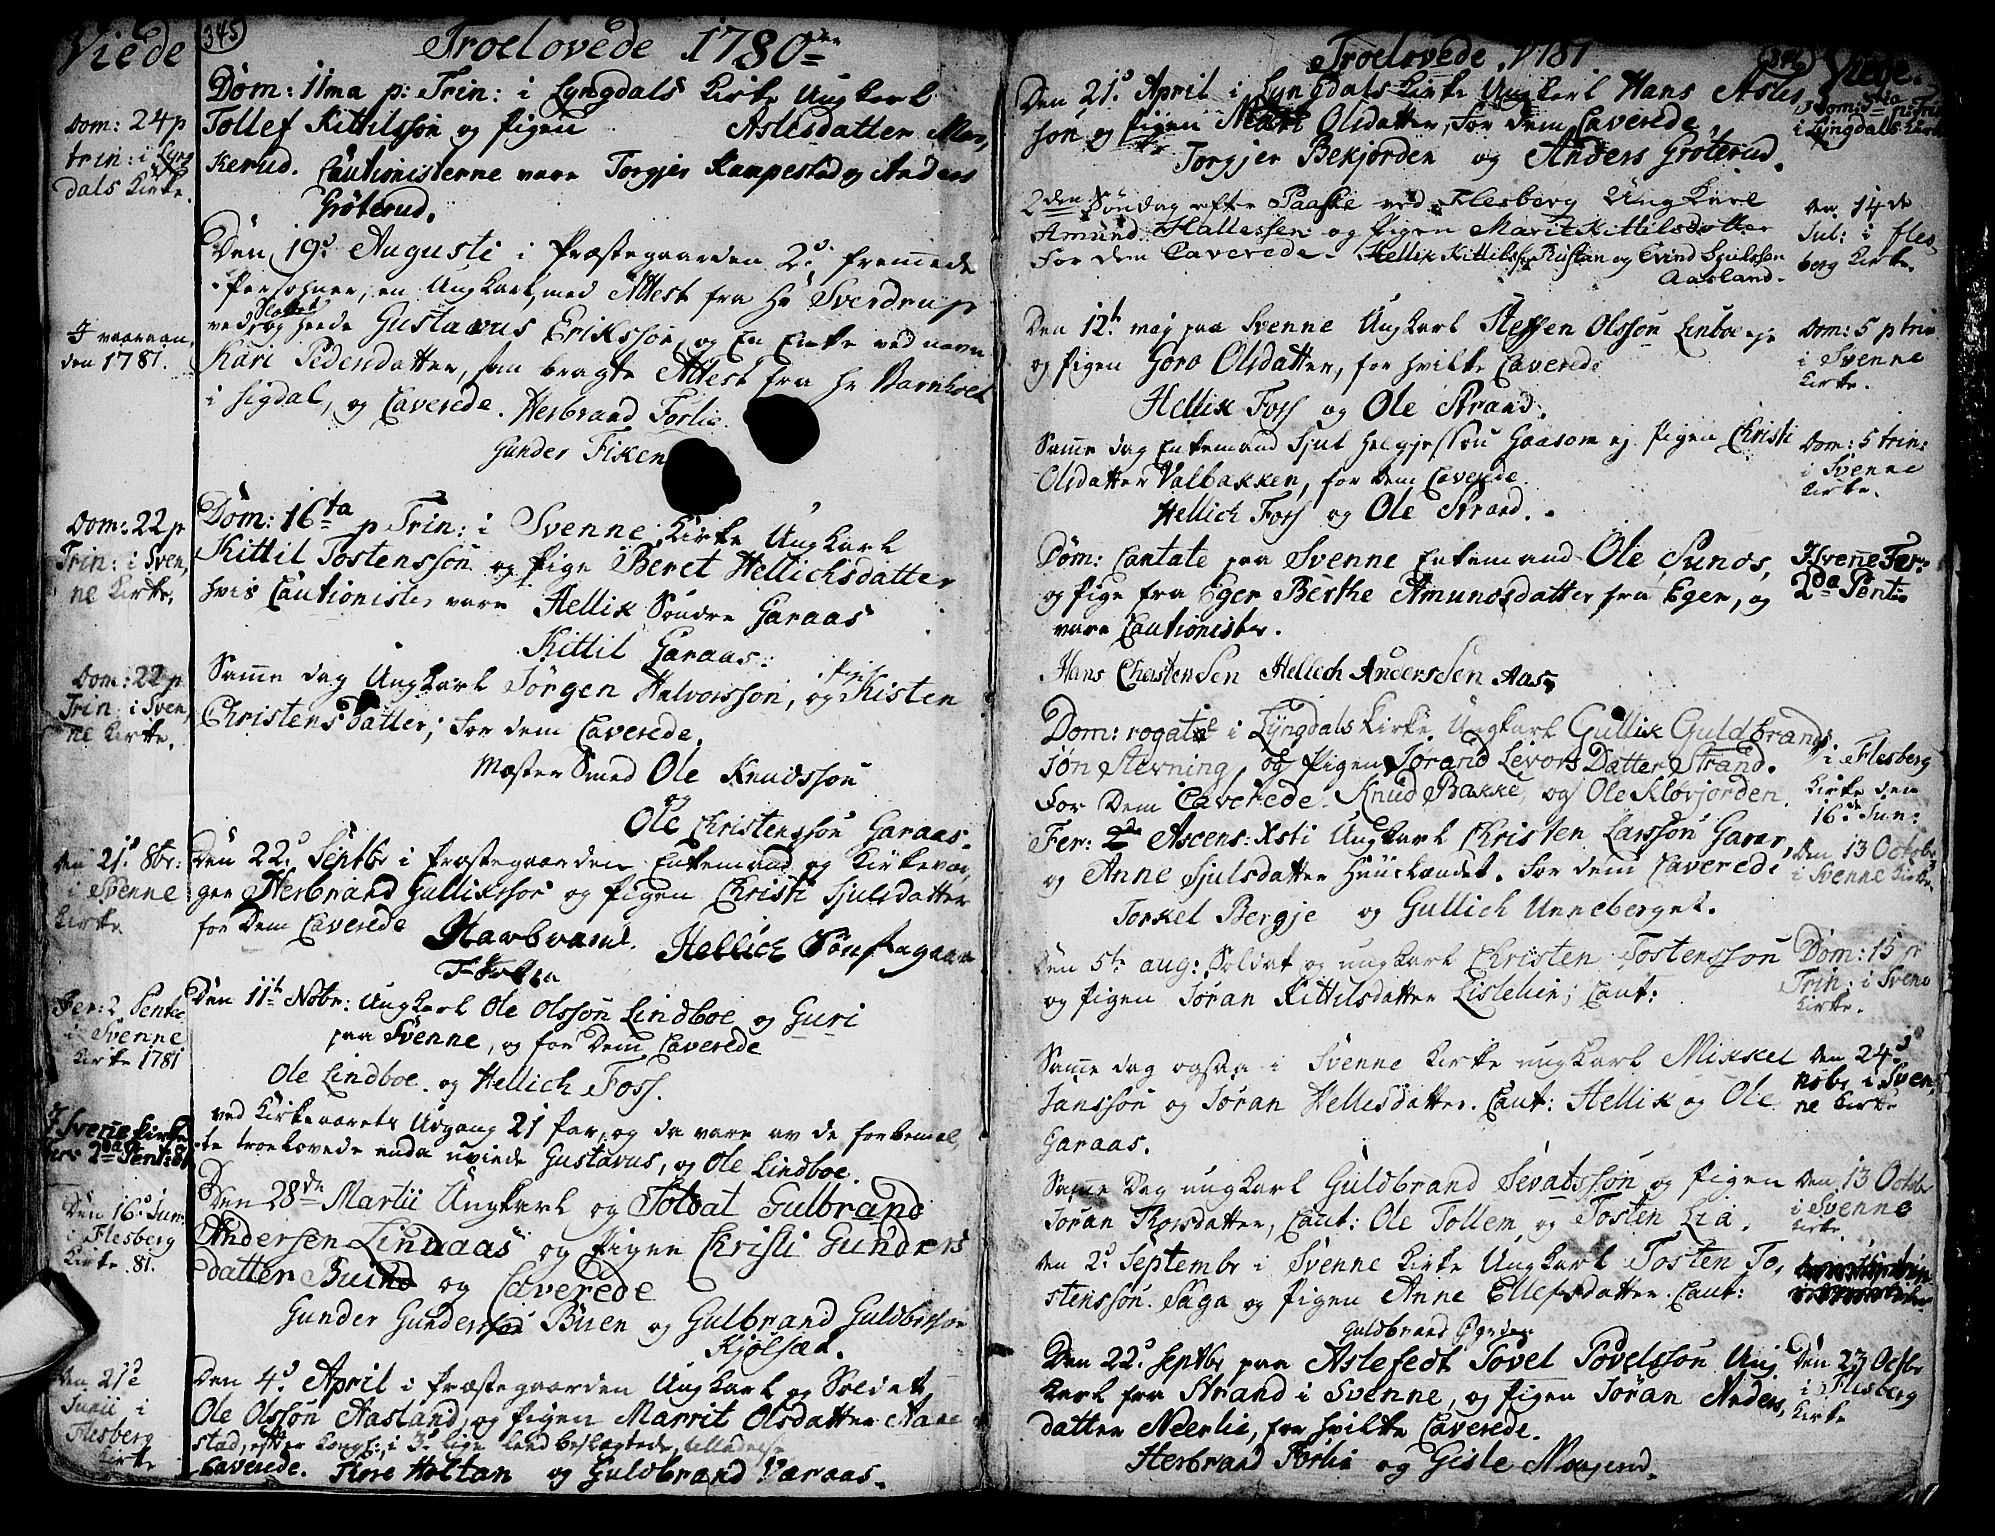 Viede
345
Troelovede 1780
Dom: 24 p
trin: i Lyng
dals Kirke.
Dom: 11ma p: Trin: i Lyngdals Kirke Ungkarl
Tollef Kittilsson og Pigen Aslesdatter Mar,
Kerud. Cautionisterne vare Torgjer Kampestad og Anders
Gröterud.
I vaaraaaret
den 1781.
Den 19de Augusti i Præstegaarden 2de fremmede
Personer, en Ungkarl med Attest fra Hr Sverdrup
ved og Heede Gustavus Eriksson, og En Enke ved navn
Kari Pedersdatter, han bragte Attest fra Hr Barnholt
i Sigdal, og Caverede. Herbrand Forlie
Gunder Fiken
Dom: 22 p
Trin: i Sven,
ne Kirke.
Dom: 16ta p Trin: i Svenne Kirke Ungkarl
Kittil Tostensson og Pige Beret Hellichsdatter
hvis Cautionister vare Hellik Söndre Garaas
Kittil Garaas.
Dom: 22 p
Trin: i Sven,
ne Kirke.
Samme dag Ungkarl Jörgen Halvorsson, og Pigen Kisten
Christensdatter; for dem Caverede.
Mester Smed Ole Knudsson
og
Ole Christensson Garaas.
Den 21de 8br:
i Svenne
Kirke
Den 22de Septbr i Præstegaarden Enkemand og Kirkevær,
ger Herbrand Gulliksson og Pigen Christi Sjulsdatter
for Dem Caverede Harbrand Hellich Sönst
Forlie
Fer: 2 Pente
i Svenne
Kirke 1781
Den 11te Nobr: Ungkarl Ole Olsson Lindboe og Guri
paa Svenne, og for Dem Caverede
Ole Lindboe og Hellich Foss.
ved Kirkeaarets Udgang 21 Par, og da vare av de forbemel,
te troelovede enda uviede Gustavus, og Ole Lindboe.
I Svenne Kirke
Fer 2da Pent: 81
Den 16de Jun:
i Flesberg
Kirke 81.
Den 28de Martii Ungkarl og Soldat Gulbrand
Andersen Lindaas og Pigen Christi Gunders
datter Buind og Caverede
Gunder Gunderson Buen og Gulbrand Guldbrsson
Kjölsæd.
Den 21de
Junii i
Flesberg
Kirke
Den 4de April i Præstegaarden Ungkarl og Soldat
Ole Olsson Aasland, og Pigen Marrit Olsdatter Aane
stad, efter Kongl: i 3de lige Leed beslægtede, tilladelse
Caverede. Tore Holtan og Guldbrand Varaas.
Troelovede 1781
346
Viede.
Den 21de April i Lyngdals Kirke Ungkarl Hans Asles,
son og Pigen Mari Olsdatter, for dem Caverede
Torgjer Bekjorden og Anders Gröterud.
Dom: 5ta p: Trin
i Lyngdals Kirke
2den Söndag efter Paaske ved Flesberg Ungkarl
Amund Hallessen og Pigen Marit Kittilsdatter
For dem Caverede. Hellik Kittilss: Rustan og Eivind Sjulssen
Aasland.
Den 14de
Jul: i Fles,
berg Kirke.
Den 12te Maj paa Svenne Ungkarl Steffen Olsson Linboe eje
og Pigen Goro Olsdatter, for hvilke Caverede
Hellik Foss og Ole Strand.
Dom: 5 p trin
i Svenne
Kirke.
Samme dag Enkemand Sjul Helgjesson Gaasom ej. Pigen Christi
Olsdatter Valbakken, for dem Caverede.
Hellich Foss og Ole Strand.
Dom: 5 trin:
i Svenne
Kirke.
Dom: Cantate paa Svenne Enkemand Ole Sunds,
og Pige fra Eger Berthe Amundsdatter fra Eger, og
vare Cautionister.
Hans Christensen Hellich Andersen Aas,
I Svenne Fer:
2da Pent:
Dom: rogate i Lyngdals Kirke Ungkarl Gullik Guldbrands
sön Stevning, og Pigen Jörand Levors Datter Strand.
For Dem Caverede Knud Bakke, og Ole Klovjorden.
i Flesberg
Kirke den
16de Jun:
Fer: Ascens: Xsti Ungkarl Christen Larsson Garer,
og Anne Sjulsdatter Huuslandet. For dem Caverede
Torkel Bergje og Gullich Unneberget.
Den 13 Octobr
i Svenne Kirke.
Den 5te Aug: Soldat og ungkarl Christen Tostensson
og Pigen Jöran Kittilsdatter Lislelie; Caut:
Dom: 15 p
Trin: i Svene
Kirke.
Samme dag ogsaa i Svenne Kirke ungkarl Mikkel
Jansson og Jöran Hellesdatter. Caut: Hellik og Ole
Garaas.
Den 24de
Nobr i Sven,
ne Kirke
Samme Dag ungkarl Guldbrand Sevatsson og Pigen
Jöran Thorsdatter, Caut: Ole Tollem, og Tosten Lia.
Den 13 Octobr
i Svenne
Kirke.
Den 2de Septembr i Svenne Kirke Ungkarl Tosten To,
stensson Saga og Pigen Anne Ellefsdatter. Caut:
Guldbrand
Den 22de Septbr paa Aslefedt Povel Povelsson Ung
karl fra Strand i Svenne, og Pigen Jöran Anders,
datter Neerlie, for hvilke Caverede.
Herbrand Forlie og Gisle Mogerud.
Den 23 Octbr
i Flesberg
Kirke